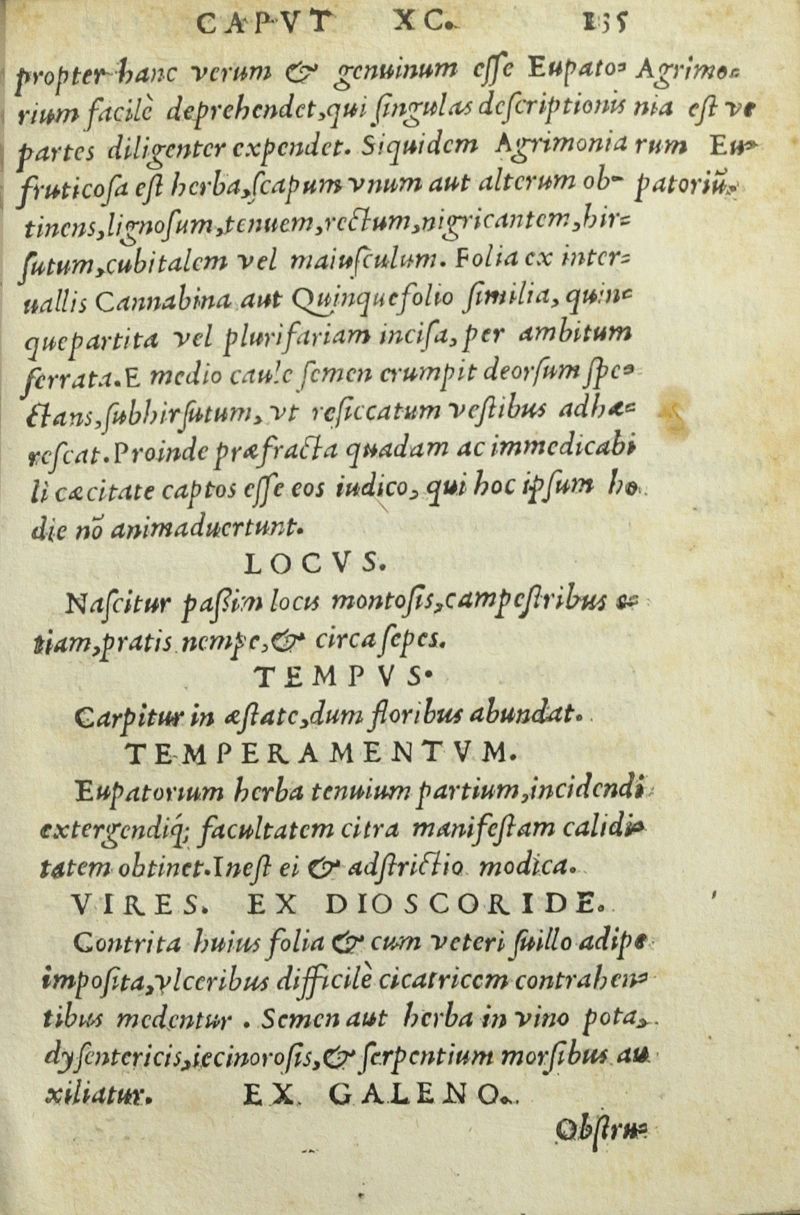 CAPVT XC. 135
propter hanc verum & genuinum esse Eupato= Agrimo=
rium facilè deprehendet, qui singulas descriptionis nia est ve
partes diligenter expendet. Siquidem Agrimonia rum Eu=
fruticosa est herba, scapum vnum aut alterum ob= patoriũ.
tinens, lignosum, tenuem, rectum, nigricantem, hir=
sutum, cubitalem vel maiusculum. Folia ex inter=
uallis Cannabina aut Quinquefolio similia, quin=
quepartita vel plurifariam incisa, per ambitum
serrata. E medio caule semen erumpit deorsum spe=
ctans, subhirsutum, vt resiccatum vestibus adhæ=
rescat. Proinde præfracta quadam ac immedicabi
li cæcitate captos esse eos iudico, qui hoc ipsum ho
die nõ animaduertunt.
LOCVS.
Nascitur passim locis montosis, campestribus e=
tiam, pratis nempe, & circa sepes.
TEMPVS.
Carpitur in æstate, dum floribus abundat.
TEMPERAMENTVM.
Eupatorium herba tenuium partium, incidendi
extergendiq́; facultatem citra manifestam calidi=
tatem obtinet. Inest ei & adstrictio modica.
VIRES. EX DIOSCORIDE.
Contrita huius folia & cum veteri suillo adipe
imposita, vlceribus difficilè cicatricem contrahen=
tibus medentur. Semen aut herba in vino pota,
dysentericis, iecinorosis, & serpentium morsibus au
xiliatur. EX GALENO.
Obstru=